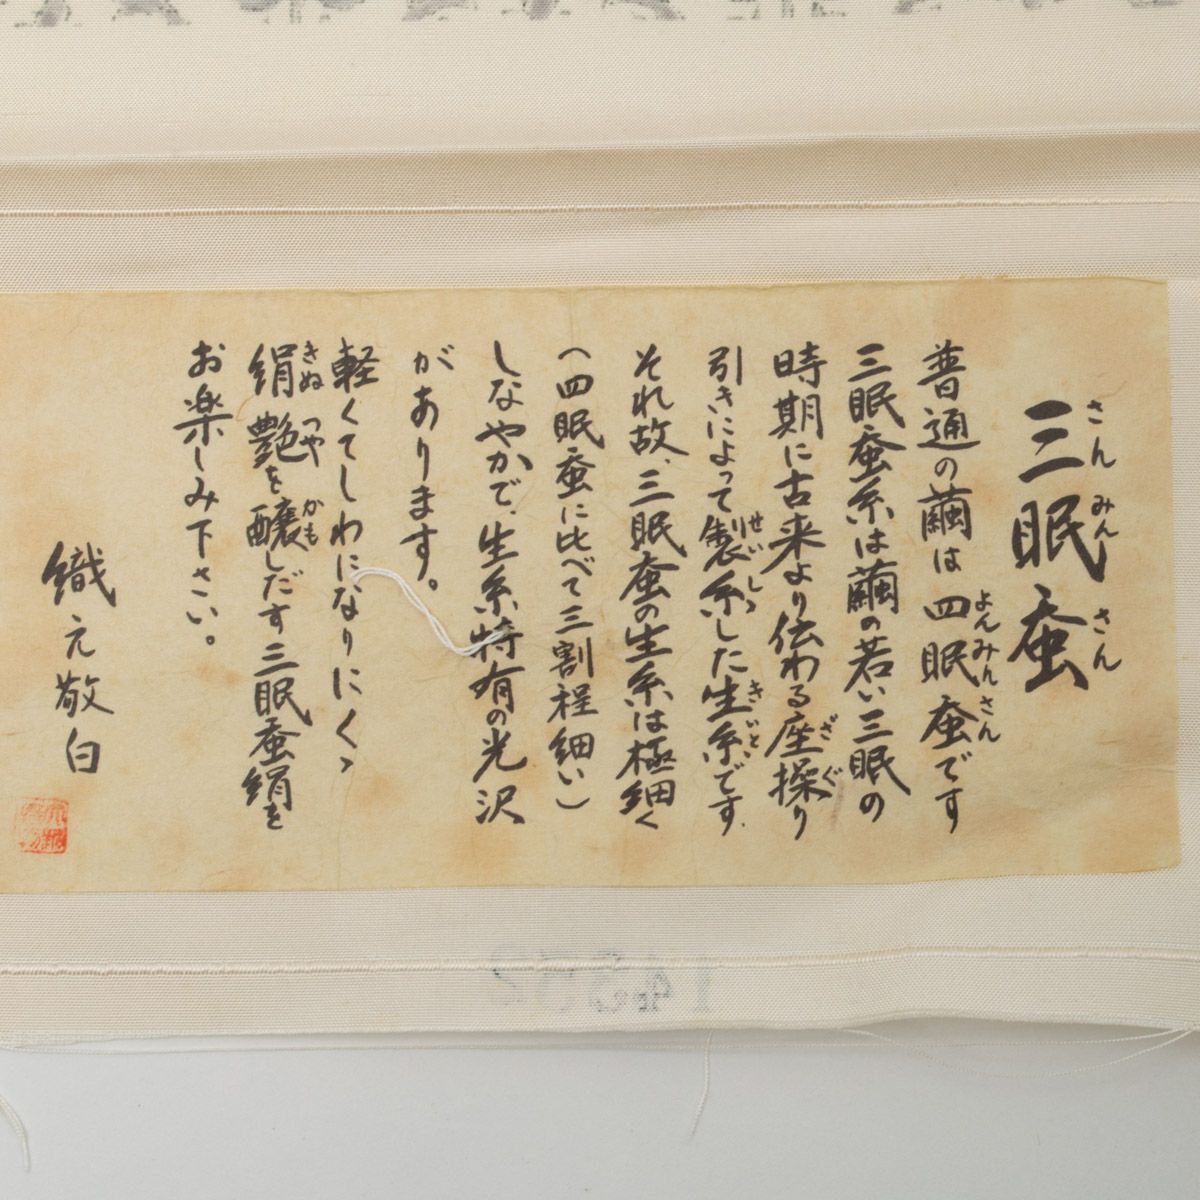 三眠蚕
さんみんさん
普通の繭は四眠蚕です
よんみんさん
三眠蚕糸は繭の若い三眠の
時期に古来より伝わる座操り
ざぐ
引きによって製糸した生糸です.
せいし
きいと
それ故、三眠蚕の生糸は極細く
(四眠蚕に比べて三割程細い)
しなやかで、生糸特有の光沢
があります。
軽くてしわになりにくゝ
絹艶を醸しだす三眠蚕絹を
きぬつや
かも
お楽しみ下さい。
織元敬白